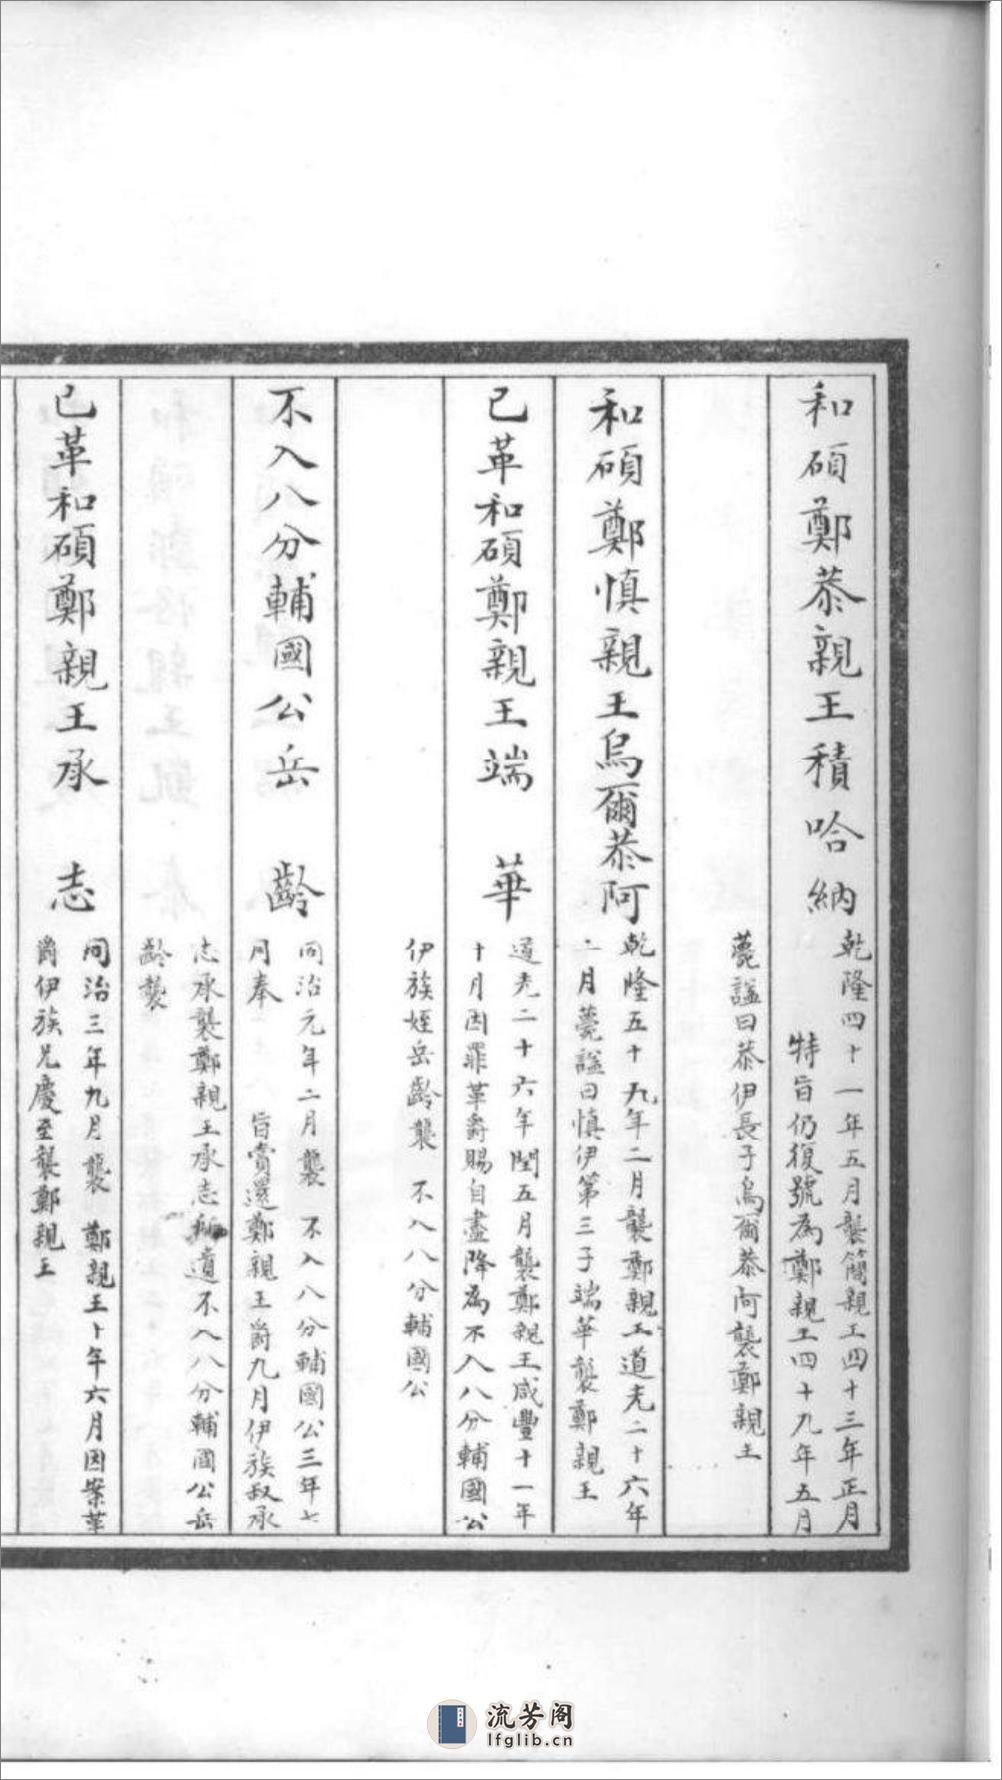 和碩鄭恭親王積哈納
乾隆四十一年五月襲簡親王四十三年正月
特旨仍復號為鄭親王四十九年五月
薨謚曰恭伊長子烏爾恭阿襲鄭親王
和碩鄭慎親王烏爾恭阿
乾隆五十九年二月襲鄭親王道光二十六年
二月薨謚曰慎伊第三子端華襲鄭親王
已革和碩鄭親王端華
道光二十六年閏五月襲鄭親王咸豐十一年
十月因罪革爵賜自盡降為不入八分輔國公
伊族姪岳齡襲 不入八分輔國公
不入八分輔國公岳齡
同治元年二月襲 不入八分輔國公三年七
月奉 旨賞還鄭親王爵九月伊族叔承
志承襲鄭親王承志所遺不入八分輔國公岳
齡襲
已革和碩鄭親王承志
同治三年九月襲 鄭親王十年六月因案革
爵伊族兄慶至襲鄭親王
流芳阁
lfglib.cn